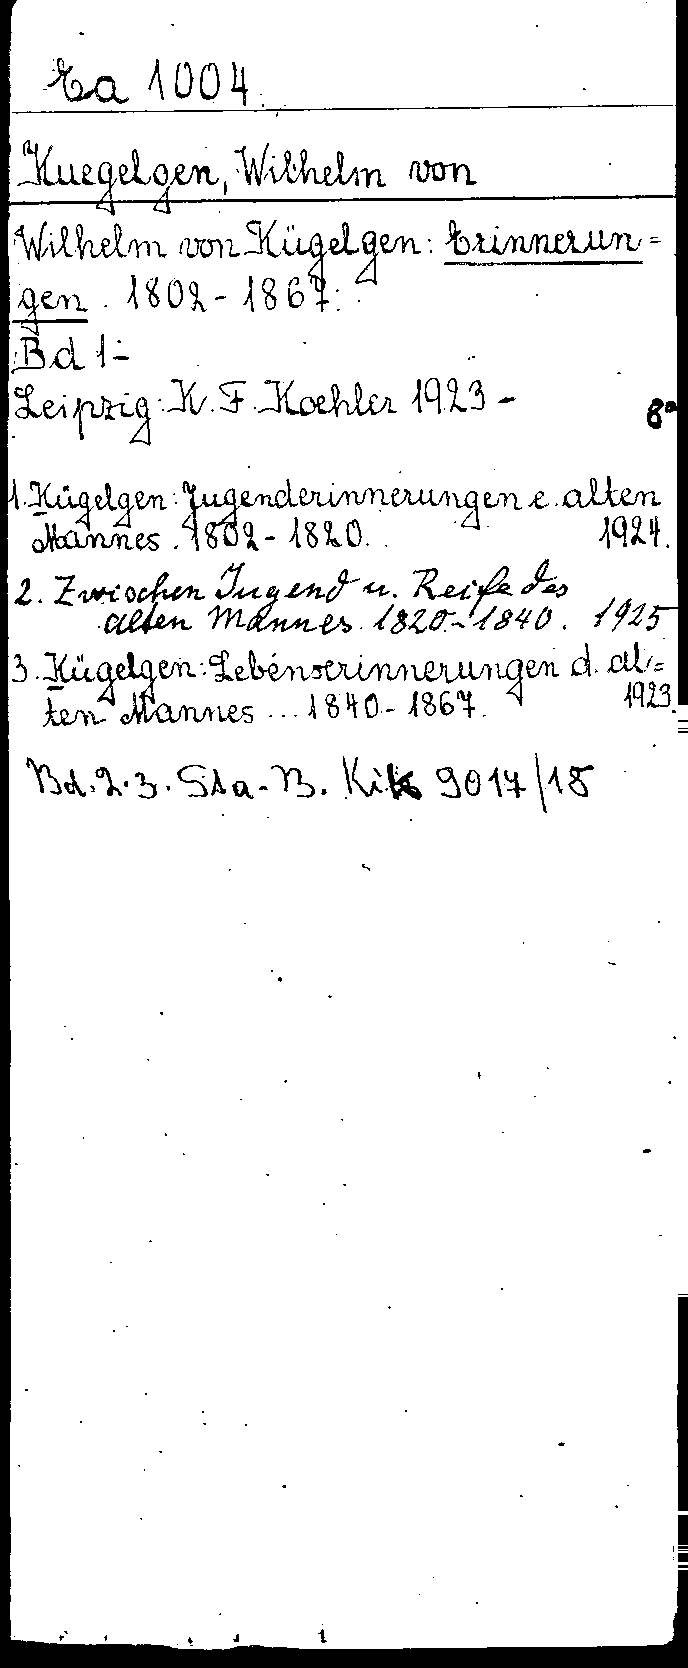 Ea 1004
Kuegelgen, Wilhelm von
Wilhelm von Kügelgen: Erinnerun=
gen. 1802-1867.
Bd 1-
Leipzig: K. F. Koehler 1923- 8°
1. Kügelgen: Jugenderinnerungen e. alten
Mannes. 1802-1820. 1924.
2. Zwischen Jugend u. Reife des
alten Mannes 1820-1840. 1925
3. Kügelgen: Lebenserinnerungen d. al=
ten Mannes ... 1840-1867. 1923.
Bd. 2.3. Sta-B. 9017/18